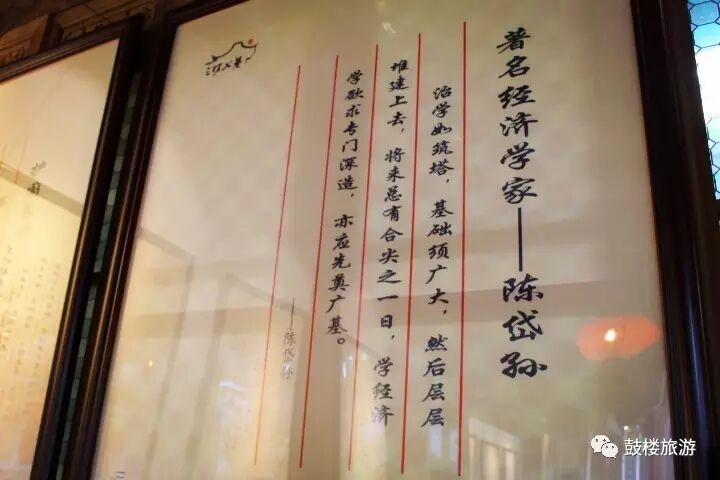 著名经济学家——陈岱孙
治学如筑塔，基础须广大，然后层层
堆建上去，将来总有合尖之一日，学经济
学欲求专门深造，亦应先奠广基。
——陈岱孙
鼓楼旅游